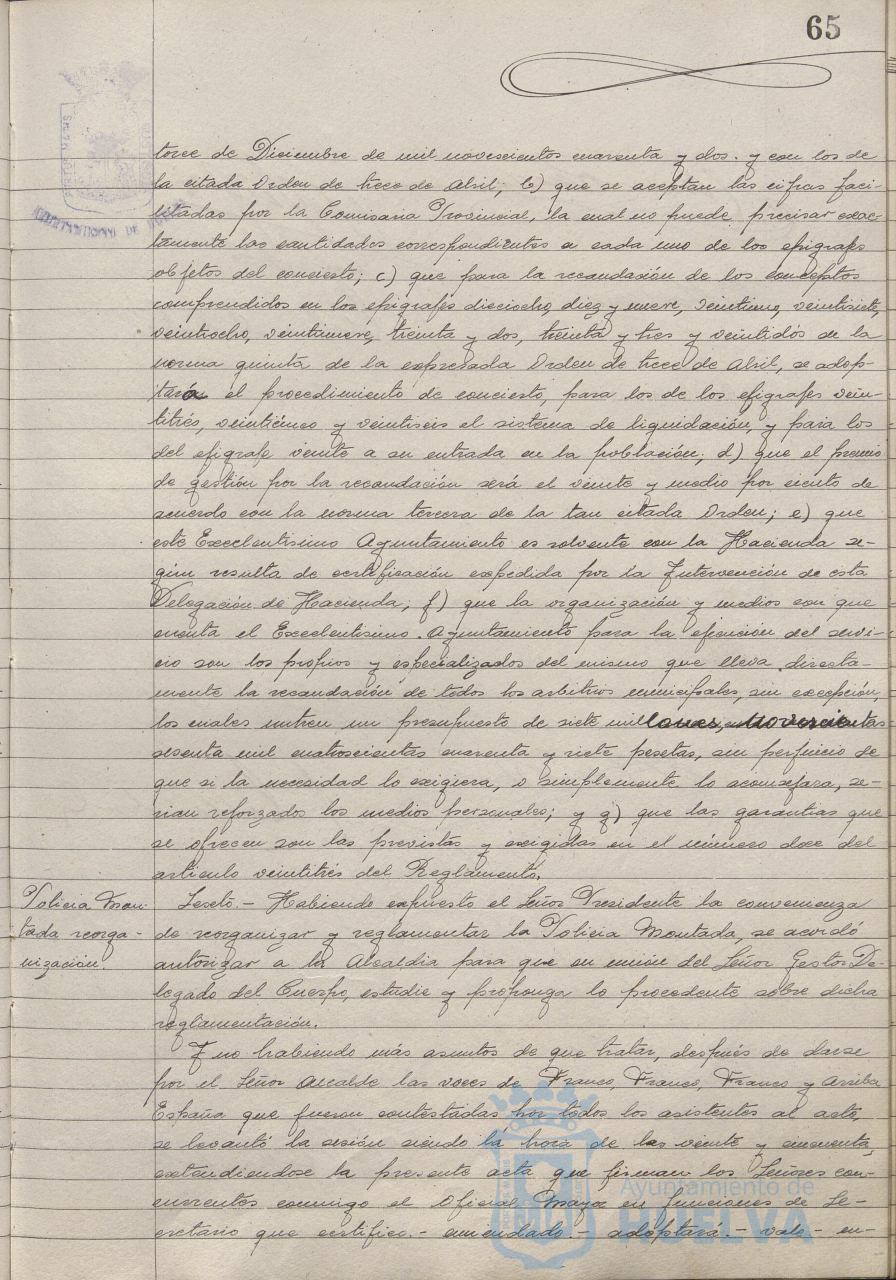 65
torce de Diciembre de mil novescientos cuarenta y dos. y con los de
la citada Orden de trece de Abril; b) que se aceptan las cifras faci-
litadas por la Comisaria Provincial, la cual no puede precisar exac-
tamente las cantidades correspondientes a cada uno de los epigrafes
objetos del concierto; c) que para la recaudasión de los conceptos
comprendidos en los epigrafes dieciocho, diez y nueve, veintiuno, veintisiete,
veintiocho, veintinueve, treinta y dos, treinta y tres y veintidós de la
norma quinta de la expresada Orden de trece de Abril, se adop-
tará el procedimiento de concierto, para los de los epigrafes vein-
titrés, veinticinco y veintiseis el sistema de liquidación, y para los
del epigrafe veinte a su entrada en la población; d) que el premio
de gestión por la recaudación será el veinte y medio por ciento de
acuerdo con la norma tercera de la tan citada Orden; e) que
este Excelentisimo Ayuntamiento es solvente con la Hacienda se-
gún resulta de certificación expedida por la Intervención de esta
Delegación de Hacienda; f) que la organización y medios con que
cuenta el Excelentisimo. Ayuntamiento para la ejecución del servi-
cio son los propios y especializados del mismo que lleva directa-
mente la recaudación de todos los arbitrios municipales, sin excepción,
los cuales nutren un presupuesto de siete millones, novecientas
sesenta mil cuatrocientas cuarenta y siete pesetas, sin perjuicio de
que si la necesidad lo exigiera, o simplemente lo aconsejara, se-
rian reforzados los medios personales; y g) que las garantias que
se ofrecen son las previstas y exigidas en el número doce del
articulo veintitrés del Reglamento.
Policia Mon-
tada reorga-
nización.
Sexto.- Habiendo expuesto el Señor Presidente la conveniencia
de reorganizar y reglamentar la Policia Montada, se acordó
autorizar a la Alcaldia para que en unión del Señor Gestor De-
legado del Cuerpo, estudie y proponga lo procedente sobre dicha
reglamentación.
Y no habiendo más asuntos de que tratar, después de darse
por el Señor Alcalde las voces de Franco, Franco, Franco y Arriba
España que fueron contestadas por todos los asistentes al acto,
se levantó la sesión siendo la hora de las veinte y cincuenta,
extendiendose la presente acta que firman los Señores con-
currentes conmigo el Oficial Mayor en funciones de Se-
cretario que certifico.- enmendado.- adoptará.- vale.- en-
Ayuntamiento de
HUELVA